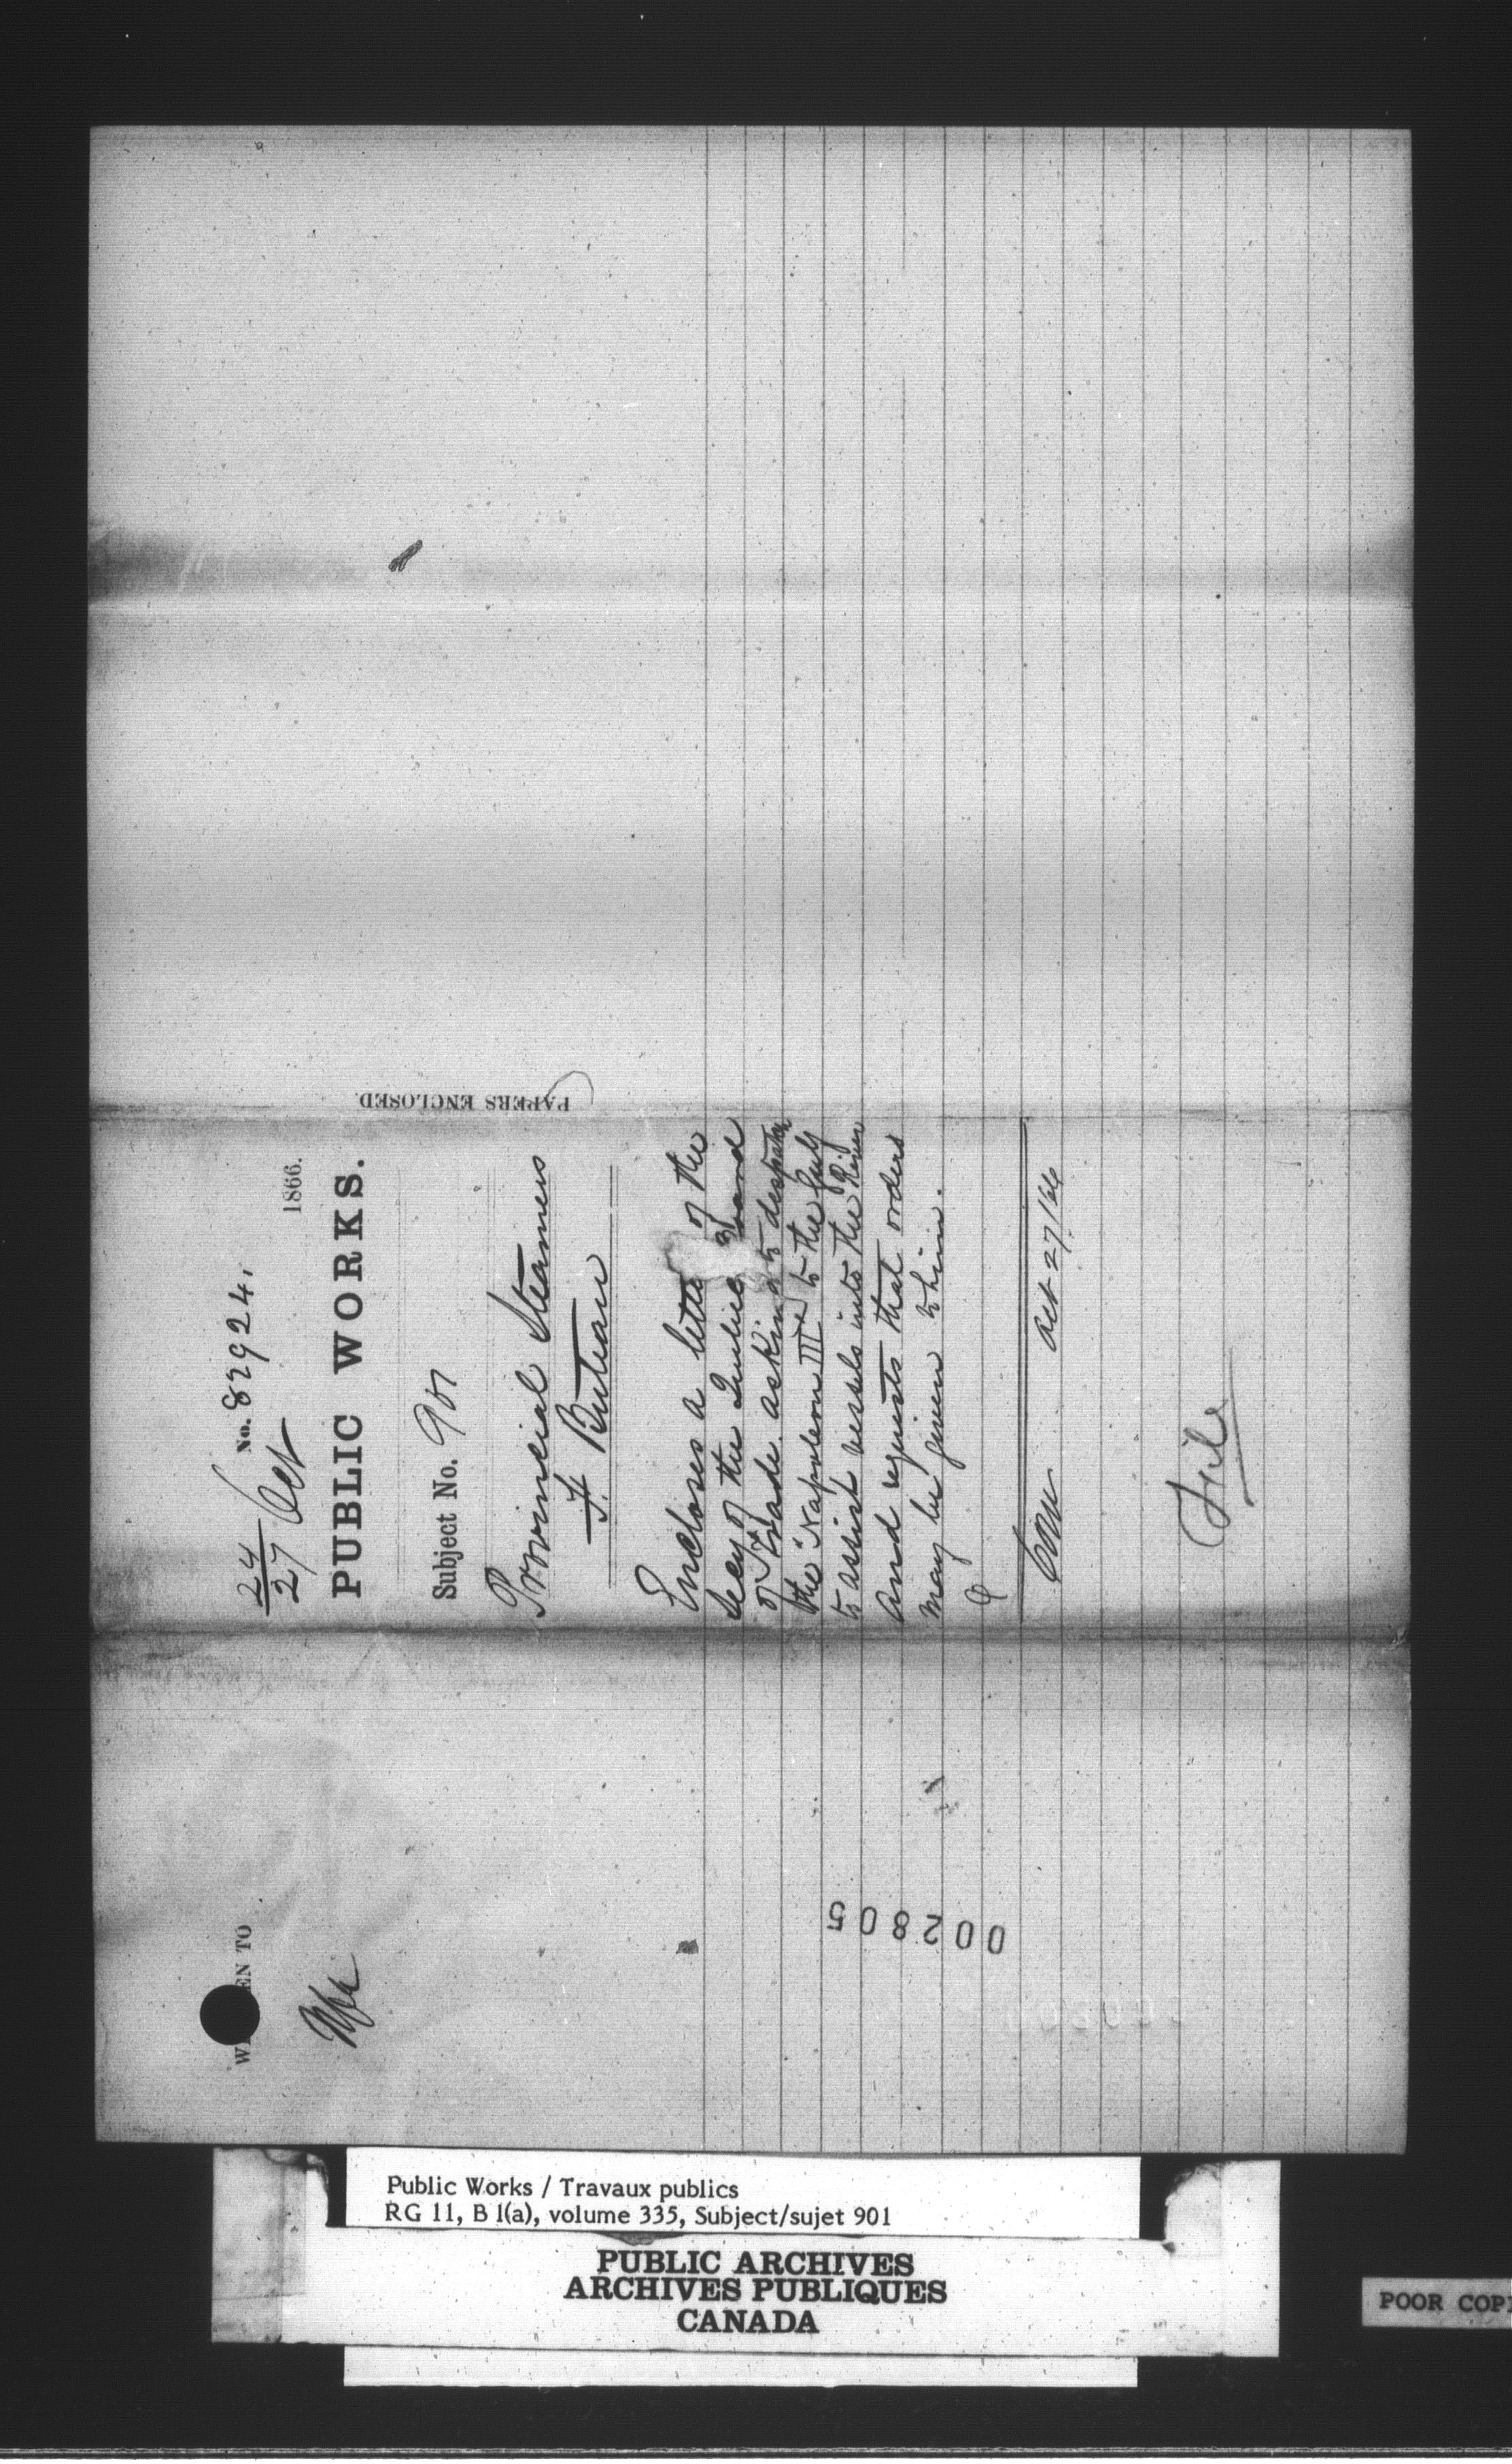 No. 82924.
24/27 Oct 1866.
PUBLIC WORKS.
Subject No. 901
Provincial Steamers
F. Buteau
Encloses a letter of the
Secy of the Quebec Board
of Trade, asking to despatch
the "Napoleon III" to the Gulf
to assist vessels into the River
and requests that orders
may be given to him.
Oct 27/66
File
PAPERS ENCLOSED
EN TO
002805
Public Works / Travaux publics
RG 11, B 1(a), volume 335, Subject/sujet 901
PUBLIC ARCHIVES
ARCHIVES PUBLIQUES
CANADA
POOR COP